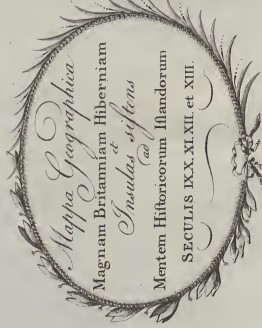 Mappa Geographica
Magnam Britanniam Hiberniam
et
Insulas sistens
ad
Mentem Historicorum Islandorum
SECULIS IX.X.XI.XII. et XIII.